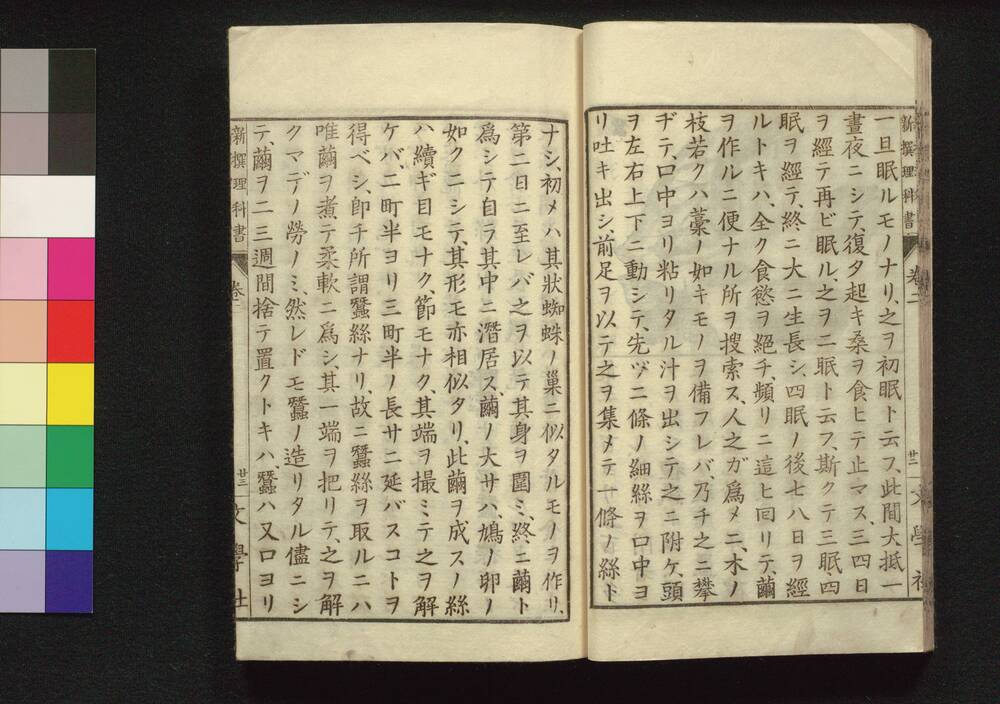 新撰理科書 卷二 廿二 文學社
一旦眠ルモノナリ、之ヲ初眠ト云フ、此間大抵一
晝夜ニシテ、復タ起キ桑ヲ食ヒテ止マス、三四日
ヲ經テ再ビ眠ル、之ヲ二眠ト云フ、斯クテ三眠四
眠ヲ經テ、終ニ大ニ生長シ、四眠ノ後七八日ヲ經
ルトキハ、全ク食慾ヲ絕チ、頻リニ這ヒ回リテ、繭
ヲ作ルニ便ナル所ヲ搜索ス、人之ガ爲メニ、木ノ
枝若クハ藁ノ如キモノヲ備フレバ、乃チ之ニ攀
ヂテ、口中ヨリ粘リタル汁ヲ出シテ之ニ附ケ、頭
ヲ左右上下ニ動シテ、先ヅ二條ノ細絲ヲ口中ヨ
リ吐キ出シ、前足ヲ以テ之ヲ集メテ一條ノ絲ト
ナシ、初メハ其狀蜘蛛ノ巢ニ似タルモノヲ作リ、
第二日ニ至レバ之ヲ以テ其身ヲ圍ミ、終ニ繭ト
爲シテ自ラ其中ニ潛居ス、繭ノ大サハ、鳩ノ卵ノ
如クニシテ、其形モ亦相似タリ、此繭ヲ成スノ絲
ハ續ギ目モナク、節モナク、其端ヲ撮ミテ之ヲ解
ケバ、二町半ヨリ三町半ノ長サニ延バスコトヲ
得ベシ、卽チ所謂蠶絲ナリ、故ニ蠶絲ヲ取ルニハ
唯繭ヲ煮テ柔軟ニ爲シ、其一端ヲ把リテ、之ヲ解
クマデノ勞ノミ、然レドモ蠶ノ造リタル儘ニシ
テ、繭ヲ二三週間捨テ置クトキハ、蠶ハ又口ヨリ
新撰理科書 卷二 廿三 文學社